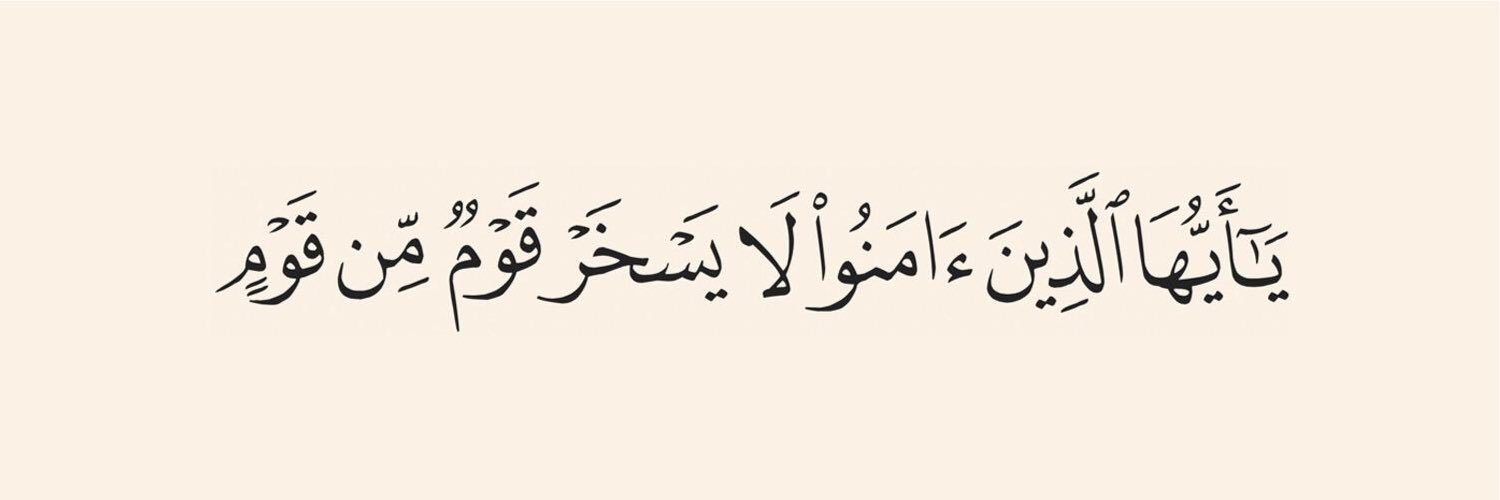 يَـٰٓأَيُّهَا ٱلَّذِينَ ءَامَنُوا۟ لَا يَسْخَرْ قَوْمٌ مِّن قَوْمٍ